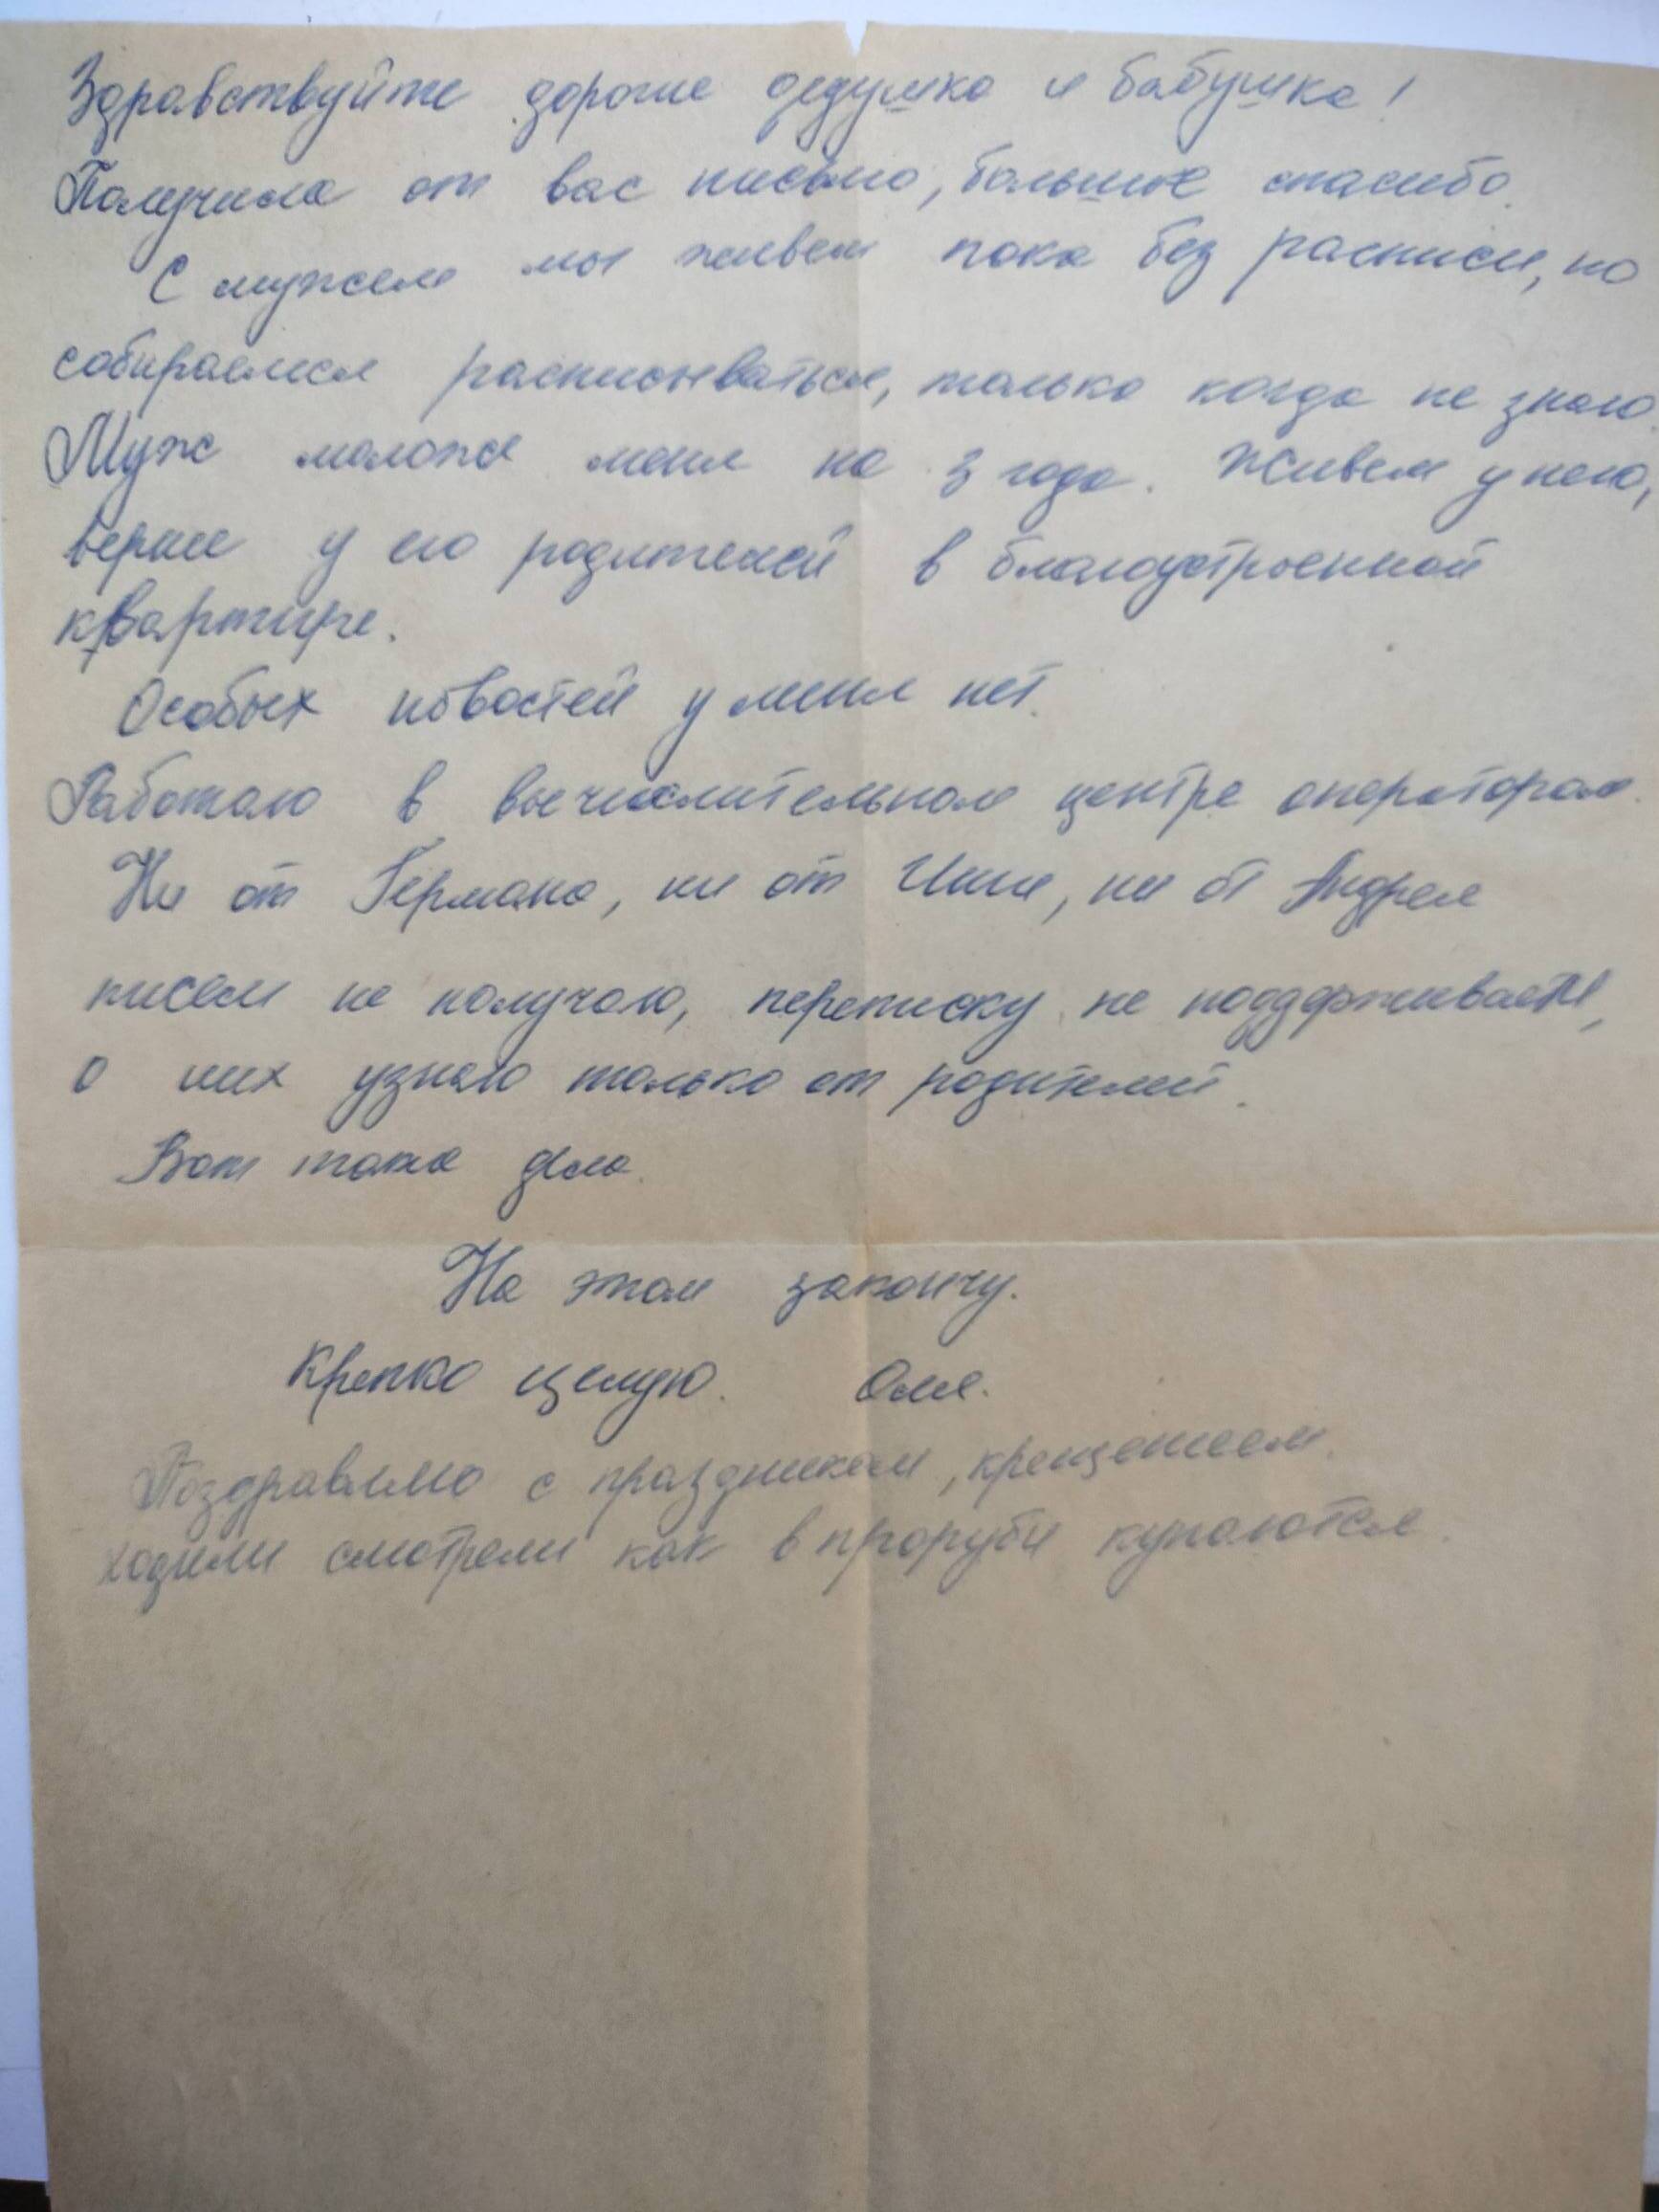 Здравствуйте дорогие дедушка и бабушка!
Получила от вас письмо, большое спасибо.
С мужем мы живем пока без расписи, но
собираемся расписываться, только когда не знаю.
Муж моложе меня на 3 года. Живем у него,
вернее у его родителей в благоустроенной
квартире.
Особых новостей у меня нет.
Работаю в вычислительном центре оператором.
Ни от Германа, ни от Инны, ни от Андрея
писем не получаю, переписку не поддерживаем,
о них узнаю только от родителей.
Вот такие дела.
На этом закончу.
Крепко целую. Оля.
Поздравляю с праздником, крещением.
ходили смотрели как в проруби купаются.